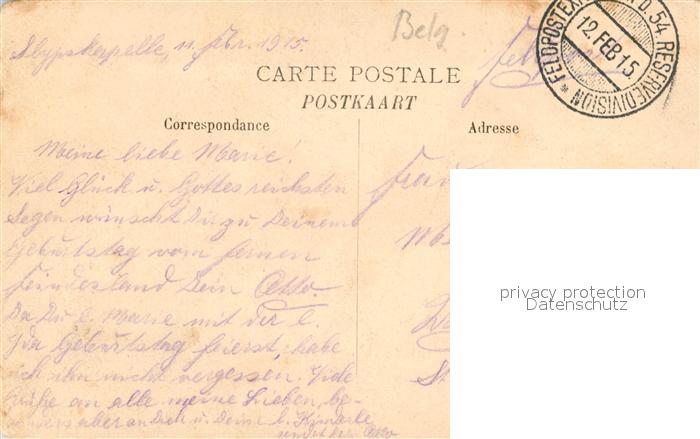 Slypskapelle, 11. Febr. 1915.
Belg.
CARTE POSTALE
POSTKAART
FELDPOSTEX D. 54. RESERVEDIVISION
12. FEB 15
Correspondance
Adresse
Meine liebe Marie!
Viel Glück u. Gottes reichsten
Segen wünscht Dir zu Deinem
Geburtstag vom fernen
Feindesland Dein Otto.
Da Du l. Marie mit der l.
Ida Geburtstag feierst, habe
ich ihn nicht vergessen. Viele
Grüße an alle meine Lieben, be-
aber an Dich u. Deine l. Kinderle
Otto
Frau
privacy protection
Datenschutz